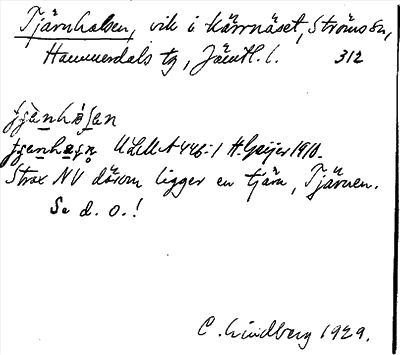 Tjärnhalsen, vik i Kärrnäset, Ströms sn,
Hammerdals tg, Jämtl. l. 312
ULMA 446:1 H. Geijer 1910.
Strax NV därom ligger en tjärn, Tjärnen.
Se d. o.!
C. Lindberg 1929.